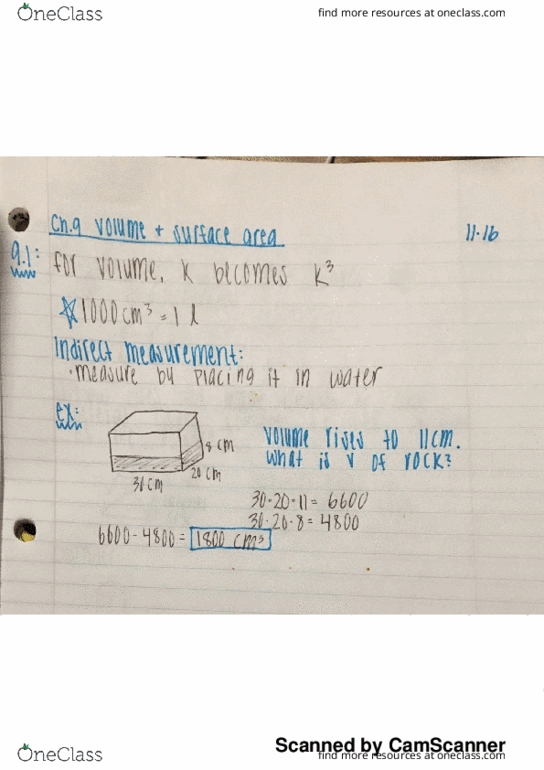 OneClass
find more resources at oneclass.com
Ch.9 volume + surface area
11.16
9.1: for volume, K becomes K³
☆1000cm³ = 1 l
Indirect measurement:
• measure by placing it in water
ex:
8 cm
20 cm
30 cm
volume rises to 11cm.
what is V of rock?
30·20·11 = 6600
30·20·8 = 4800
6600 - 4800 = 1800 cm³
Scanned by CamScanner
OneClass
find more resources at oneclass.com